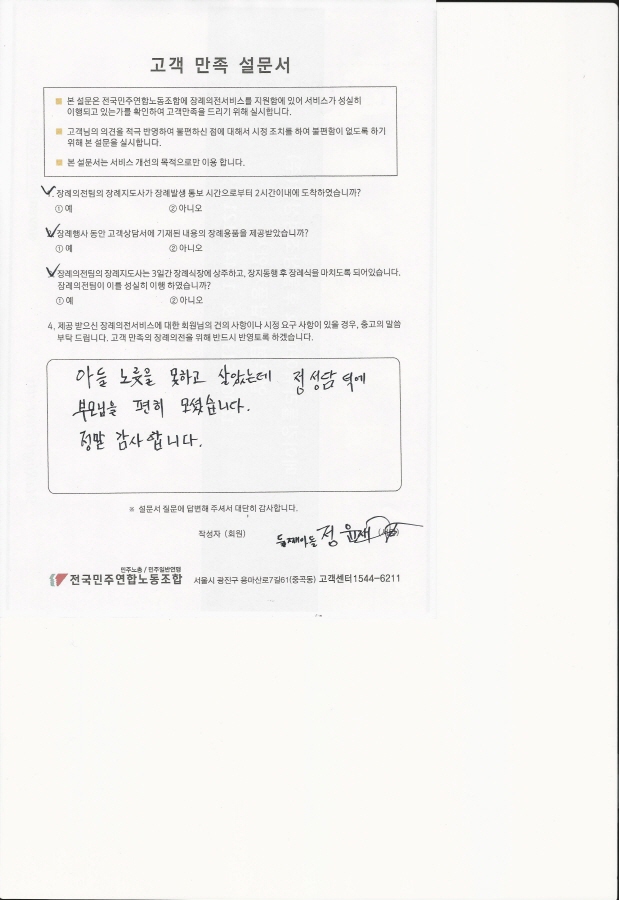 고객 만족 설문서
본 설문은 전국민주연합노동조합에 장례의전서비스를 지원함에 있어 서비스가 성실히
이행되고 있는가를 확인하여 고객만족을 드리기 위해 실시합니다.
고객님의 의견을 적극 반영하여 불편하신 점에 대해서 시정 조치를 하여 불편함이 없도록 하기
위해 본 설문을 실시합니다.
본 설문서는 서비스 개선의 목적으로만 이용 합니다.
1. 장례의전팀의 장례지도사가 장례발생 통보 시간으로부터 2시간이내에 도착하였습니까?
① 예 ② 아니오
장례행사 동안 고객상담서에 기재된 내용의 장례용품을 제공받았습니까?
① 예 ② 아니오
장례의전팀의 장례지도사는 3일간 장례식장에 상주하고, 장지동행 후 장례식을 마치도록 되어있습니다.
장례의전팀이 이를 성실히 이행 하였습니까?
① 예 ② 아니오
4. 제공 받으신 장례의전서비스에 대한 회원님의 건의 사항이나 시정 요구 사항이 있을 경우, 충고의 말씀
부탁 드립니다. 고객 만족의 장례의전을 위해 반드시 반영토록 하겠습니다.
아들 노릇을 못하고 살았는데 정성담 덕에
부모님을 편히 모셨습니다.
정말 감사합니다.
※ 설문서 질문에 답변해 주셔서 대단히 감사합니다.
작성자 (회원) 둘째아들 정윤재
민주노총 / 민주일반연맹
전국민주연합노동조합 서울시 광진구 용마산로7길61(중곡동) 고객센터1544-6211